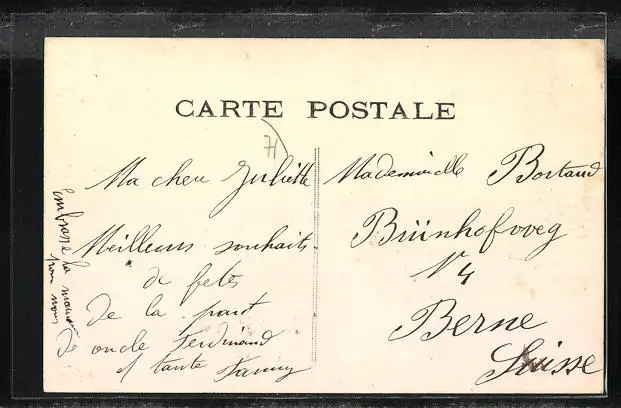 CARTE POSTALE
71
Ma cheu Juliette
Meilleurs souhaits
de fete
de la part
de oncle Ferdinand
et tante Fanny
Embrasse la maman
pour nous
Mademoiselle Bortaud
Brünhofweg
N° 4
Berne
Suisse